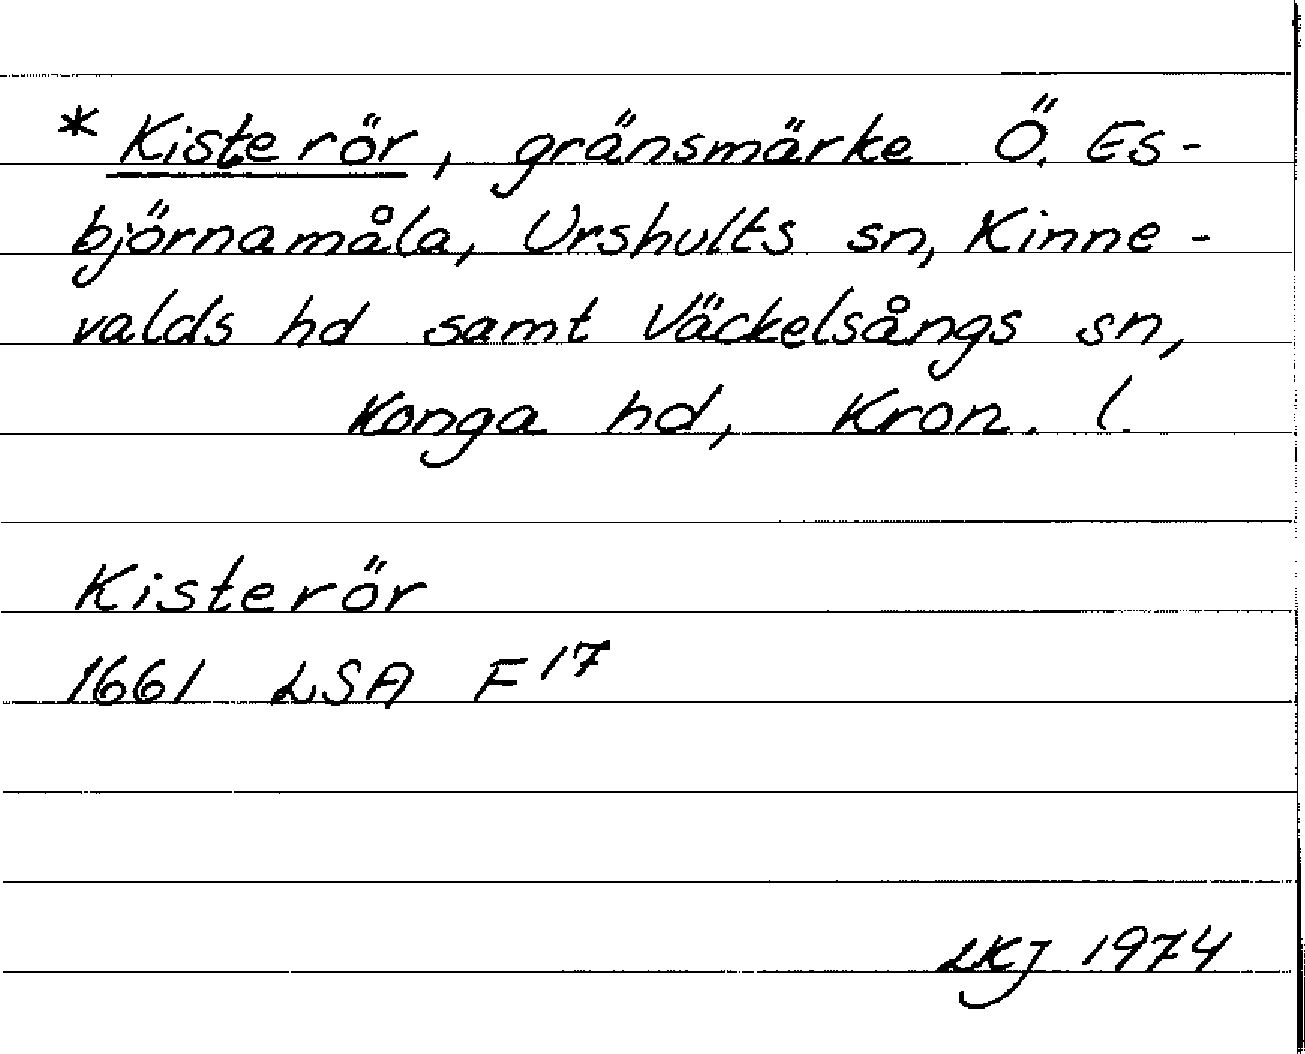 * Kisterör, gränsmärke Ö. Es-
björnamåla, Urshults sn, Kinne-
valds hd samt Väckelsångs sn,
Konga hd, Kron. l.
Kisterör
1661 LSA F 17
LKJ 1974